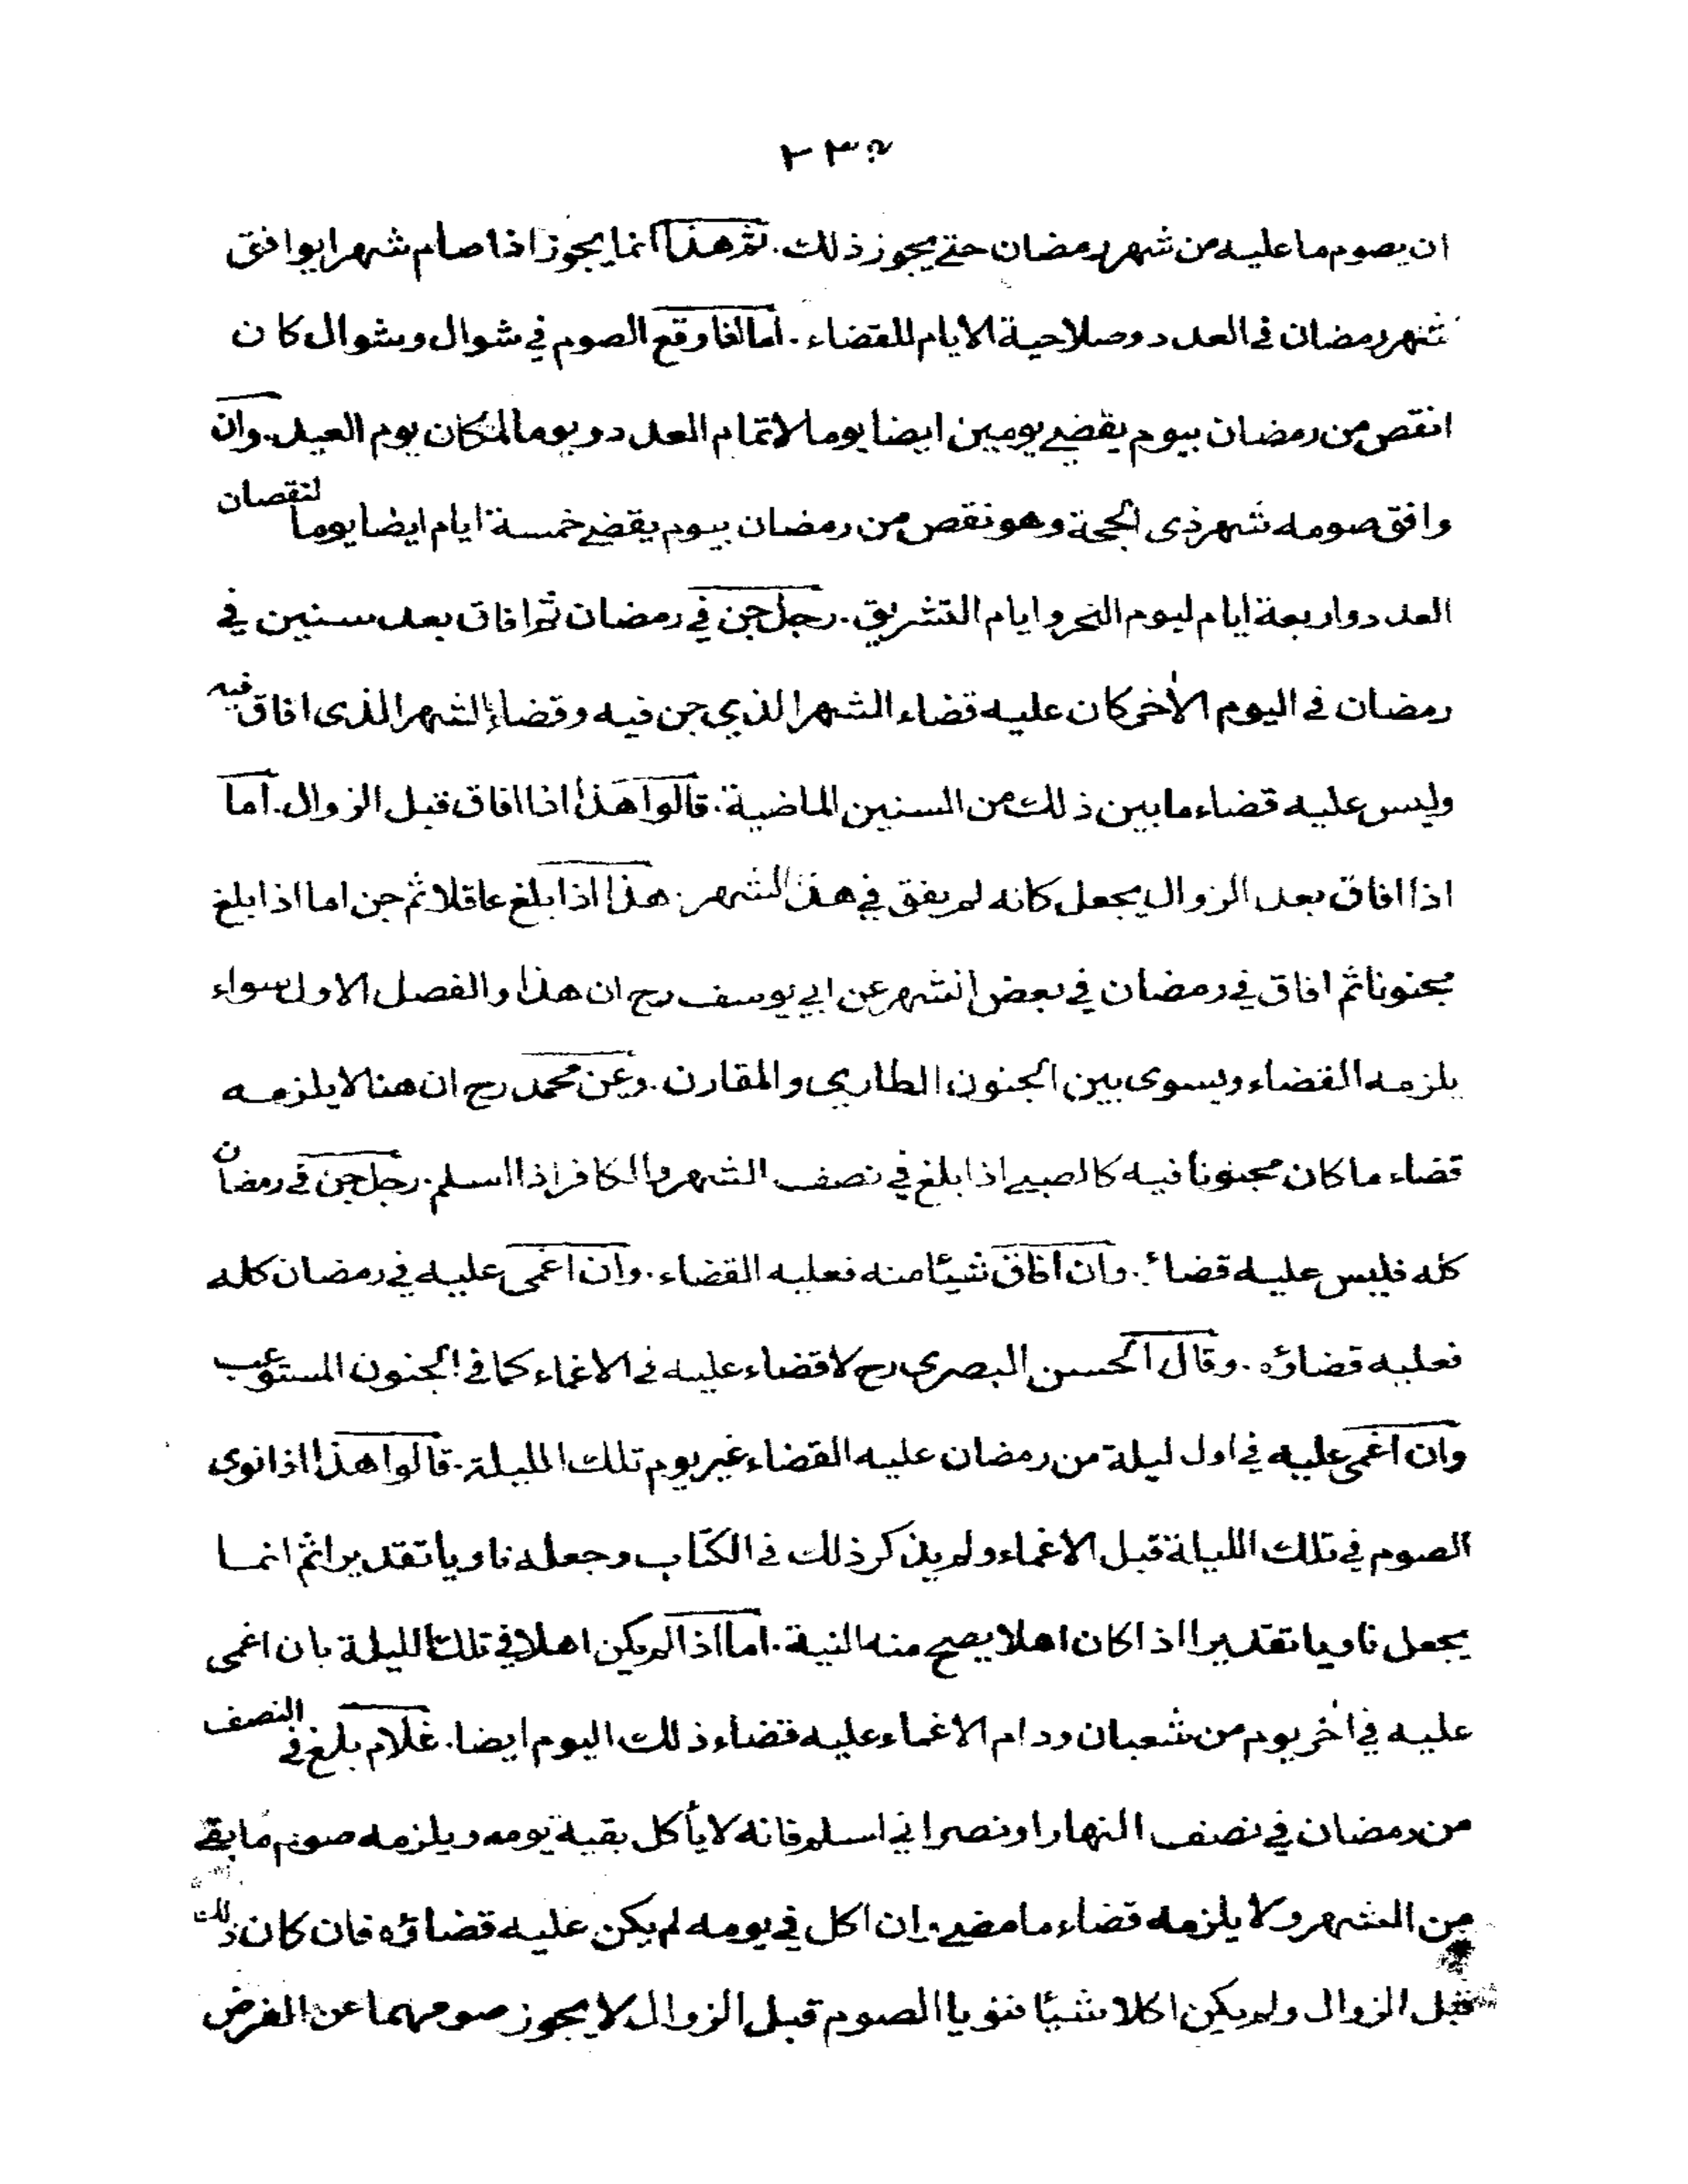 ٢٣٥
ان يصوم ما عليه من شهر رمضان حتى يجوز ذلك. ثم هذا انما يجوز اذا صام شهرا يوافق
شهر رمضان في العدد وصلاحية الايام للقضاء. اما اذا وقع الصوم في شوال وشوال كان
انقص من رمضان بيوم يقضي يومين ايضا يوما لاتمام العدد ويوما لمكان يوم العيد. وان
وافق صومه شهر ذى الحجة وهو نقص من رمضان بيوم يقضي خمسة ايام ايضا يوما لنقصان
العدد واربعة ايام ليوم النحر وايام التشريق. رجل جن في رمضان ثم افاق بعد سنين في
رمضان في اليوم الأخر كان عليه قضاء الشهر الذي جن فيه وقضاء الشهر الذى افاق فيه
وليس عليه قضاء ما بين ذلك من السنين الماضية. قالوا هذا اذا افاق قبل الزوال. اما
اذا افاق بعد الزوال يجعل كانه لم يفق في هذا الشهر. هذا اذا بلغ عاقلا ثم جن اما اذا بلغ
مجنونا ثم افاق في رمضان في بعض الشهر عن ابي يوسف رح ان هذا والفصل الاول سواء
يلزمه القضاء ويسوى بين الجنون الطاري والمقارن. وعن محمد رح ان هنا لا يلزمه
قضاء ما كان مجنونا فيه كالصبي اذا بلغ في نصف الشهر والكافر اذا اسلم. رجل جن في رمضان
كله فليس عليه قضاء. وان افاق شيئا منه فعليه القضاء. وان اغمى عليه في رمضان كله
فعليه قضاؤه. وقال الحسن البصري رح لا قضاء عليه في الاغماء كما في الجنون المستوعب
وان اغمى عليه في اول ليلة من رمضان عليه القضاء غير يوم تلك الليلة. قالوا هذا اذا نوى
الصوم في تلك الليلة قبل الاغماء ولم يذكر ذلك في الكتاب وجعله ناويا تقديرا ثم انما
يجعل ناويا تقديرا اذا كان اهلا يصح منه النية. اما اذا لم يكن اهلا في تلك الليلة بان اغمى
عليه في اخر يوم من شعبان ودام الاغماء عليه قضاء ذلك اليوم ايضا. غلام بلغ في النصف
من رمضان في نصف النهار او نصراني اسلم فانه لا يأكل بقية يومه ويلزمه صوم ما بقي
من الشهر ولا يلزمه قضاء ما مضى. وان اكل في يومه لم يكن عليه قضاؤه فان كان ذلك
قبل الزوال ولم يكن اكلا شيئا فنويا الصوم قبل الزوال لا يجوز صومهما عن الفرض